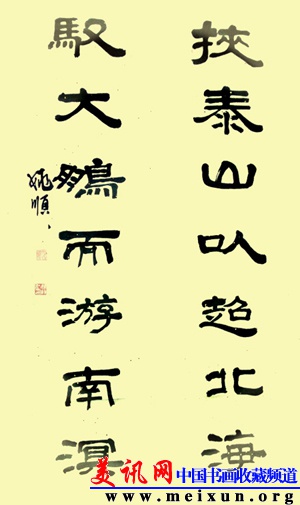 挾泰山以超北海
馭大鵬而游南溟
姚順
美讯网 中国书画收藏频道
www.meixun.org